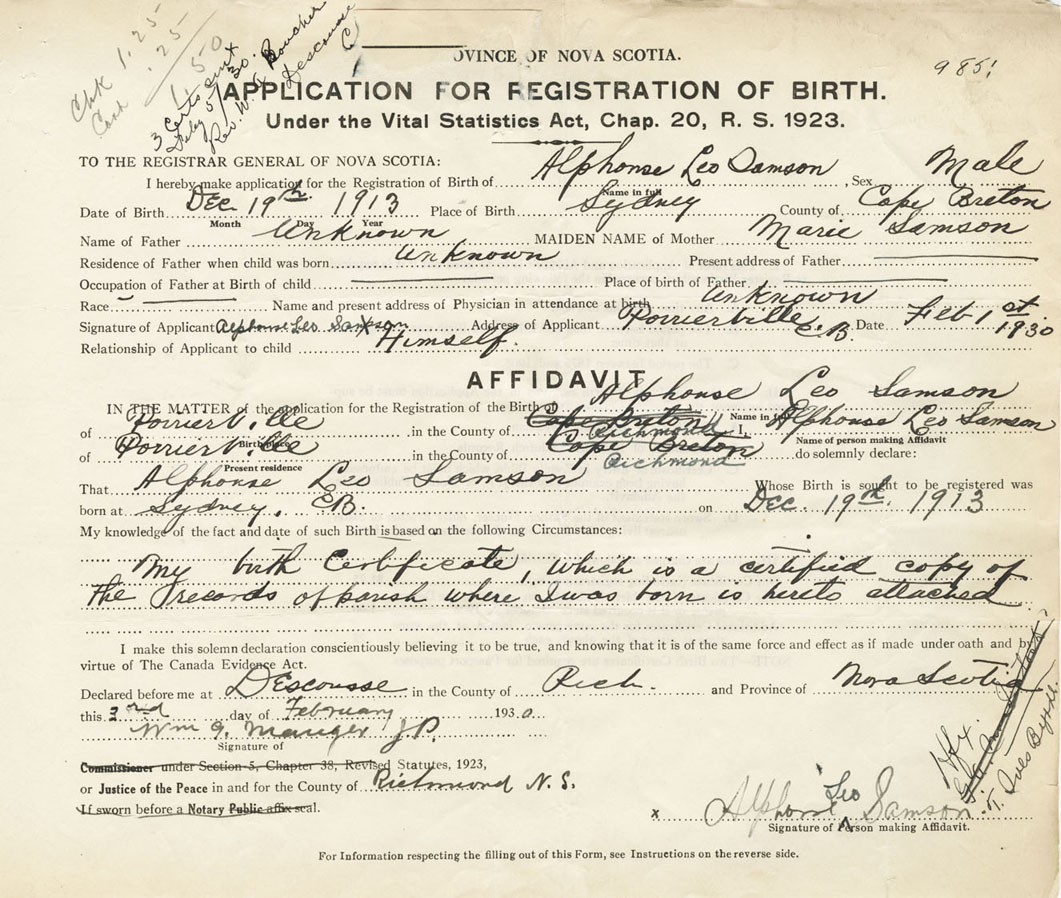 Chk 1.25
Cash .25
1.50
3 Certs sent
Feby 5/30.
Rev. W. Boucher
Descousse
C
OVINCE OF NOVA SCOTIA.
985
APPLICATION FOR REGISTRATION OF BIRTH.
Under the Vital Statistics Act, Chap. 20, R. S. 1923.
TO THE REGISTRAR GENERAL OF NOVA SCOTIA:
I hereby make application for the Registration of Birth of Alphonse Leo Samson, Sex Male
Name in full
Date of Birth Dec 19th 1913 Place of Birth Sydney County of Cape Breton
Month Day Year
Name of Father Unknown MAIDEN NAME of Mother Marie Samson
Residence of Father when child was born Unknown Present address of Father
Occupation of Father at Birth of child Place of birth of Father
Race Name and present address of Physician in attendance at birth Unknown
Signature of Applicant Alphonse Leo Samson Address of Applicant Poirrierville C.B. Date Feb 1st 1930
Relationship of Applicant to child Himself.
AFFIDAVIT
IN THE MATTER of the application for the Registration of the Birth of Alphonse Leo Samson
Name in full
of PoirrierVille in the County of Cape Breton Richmond I, Alphonse Leo Samson
Birthplace Name of person making Affidavit
of PoirrierVille in the County of Cape Breton Richmond do solemnly declare:
Present residence
That Alphonse Leo Samson Whose Birth is sought to be registered was
born at Sydney, CB. on Dec. 19th, 1913
My knowledge of the fact and date of such Birth is based on the following Circumstances:
My birth Certificate, which is a certified copy of
the records of parish where I was born is hereto attached
I make this solemn declaration conscientiously believing it to be true, and knowing that it is of the same force and effect as if made under oath and by
virtue of The Canada Evidence Act.
Declared before me at DEscousse in the County of Rich. and Province of Nova Scotia
this 3rd day of February 1930.
Wm G. Mauger J.P.
Signature of
Commissioner under Section 5, Chapter 38, Revised Statutes, 1923,
or Justice of the Peace in and for the County of Richmond N.S.
If sworn before a Notary Public affix seal.
x Alphonse Leo Samson
Signature of Person making Affidavit.
For Information respecting the filling out of this Form, see Instructions on the reverse side.